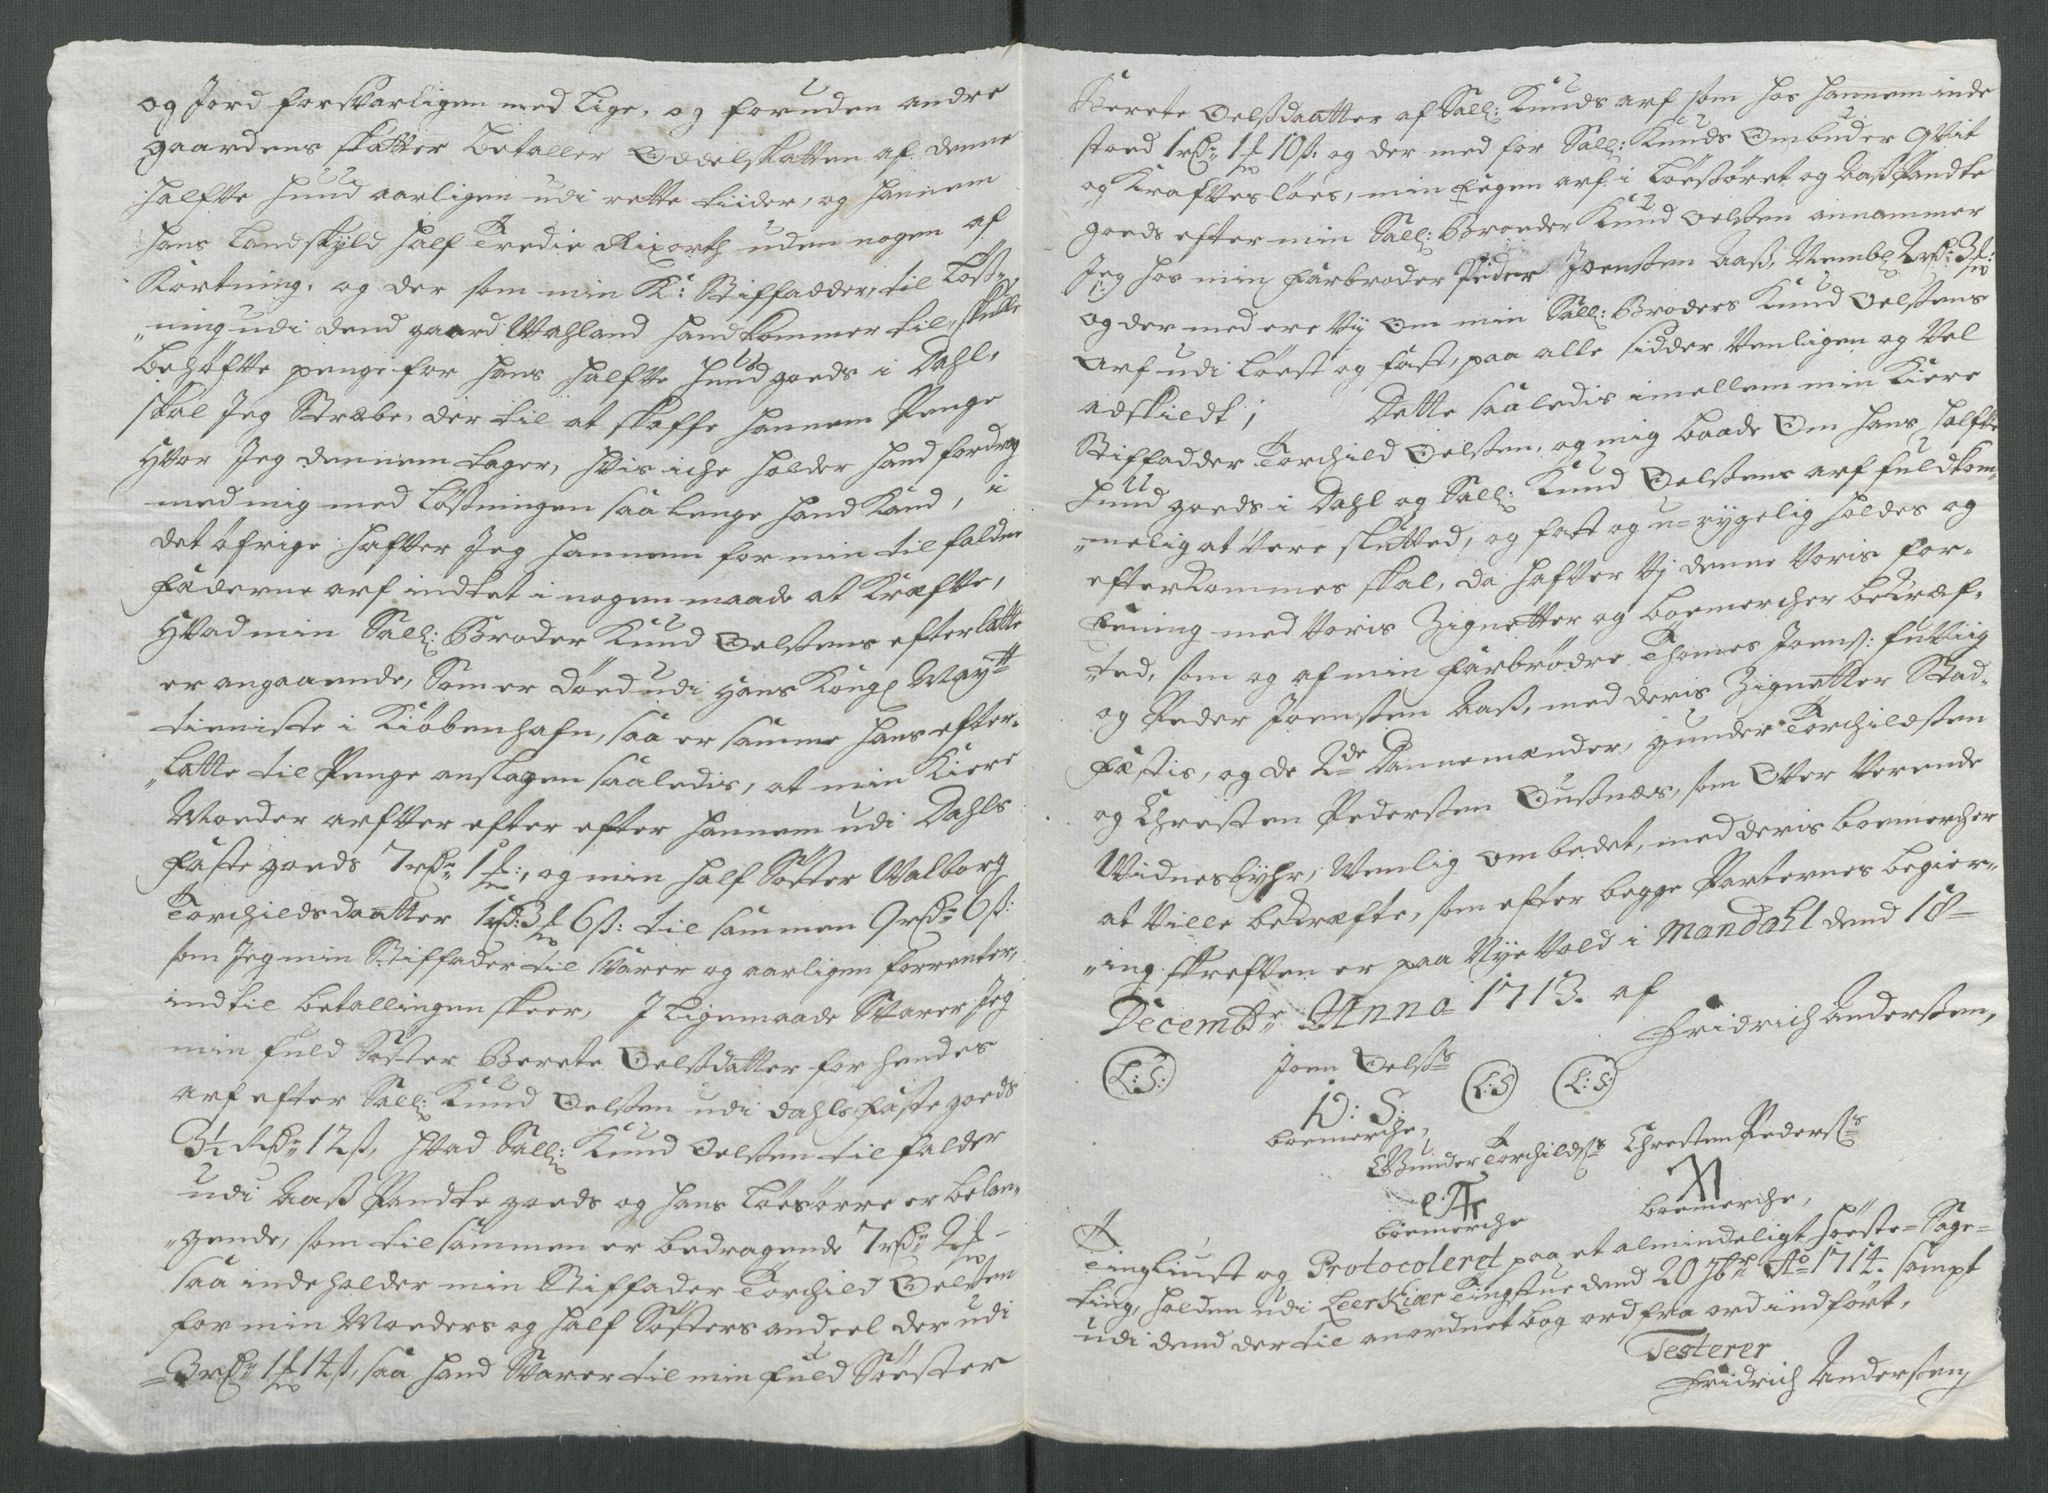 og Jord forsvarligen med Lige, og foruden andre
gaardens skatter betaller Oddelskatten af denne
halfte huud aarligen udi rette tiider, og hannem
hans Landskyld half Tredie Rixorth uden nogen af
Kortning, og der som min K: Stiffadder, til Løst„
„ning udi dend gaard Wahland hand kommer til, skulle
behøfte penge for hans halfte huud goeds i Dahl,
skal Jeg Stræbe der til at skaffe hannem Penge
hvor Jeg dennem tager, hvis iche holder hand fordrag
med mig med Løstningen saa lenge hand Kand, i
det øfrige hafter Jeg hannem for min til faldne
Fæderne arf indtet i nogen maade at Kræfte,
hvad min Sall: Broder Knud Oelstens efterlatte
er angaaende, Som er Døed udi Hans Kongl Maytt
tieniste i Kiøbenhafn, saa er samme hans efter„
„latte til Penge anslagen saaledis, at min Kiere
Moeder arfver efter efter hannem udi Dahls
Faste goeds 7 rdr 1 ort, og min half Søster Walborg
Torchildsdaatter 1 rd: 3 ort 6 s: til sammen 9 rdr 6 s:
som Jeg min Stiffader til svarer og aarligen forrenter,
indtil betallingen skeer, I Ligemaade Svarer Jeg
min fuld Søster Berete Oelsdatter for hendes
arf efter Sall: Knud Oelsten udi Dahls Faste goeds
3½ Rdr 12 s, hvad Sall: Knud Oelsten til falder
udi Aass Pandte goeds og hans Løesørre er belan„
„gende, som til sammen er bedragende 7 rdr 2 ort
saa indeholder min Stiffader Torchild Oelsten
for min Moeders og half Søsters andeel der udi
3 rdr 1 ort 14 s, saa hand Svarer til min fuld Søster
Berete Oelsdaatter af Sall: Knuds arf som hos hannem inde
stoed 1 rdr 1 ort 10 s. og der med for Sall: Knuds Ombuder qvit
og Krafteslöes, min Eegen arf i Løesøret og Aass Pandte
goeds efter min Sall: Broeder Knud Oelsten annammer
Jeg hos min Farbroder Peder Joensten Aass, Nembl 2 rdr 3 ort:
og der med ere Vy om min Sall: Broders Knud Oelstens
Arf udi Løest og fast, paa alle sidder Venligen og Vel
adskildt; Dette saaledis imellem min Kiere
Stiffadder Torchild Oelsten, og mig baade Om hans halfte
huud goeds i Dahl og Sall: Knud Oelstens arf fuldkom„
„melig at Vere sluttet, og fast og u-rygelig holdes og
efterkommes skal, da hafver Vj denne Voris for„
eening med Voris Zignetter og boemercher bekræf„
„ted, som og af min Farbrødre Thomes Joens:
og Peder Joensten Aass, med deris Zignetter Stad„
fæstis, og de 2de Dannemænder, Gunder Torchildsten
og Chresten Pedersten Ousnæs, som Over Verende
Vidnesbyhr, Venlig ombedet, med deris boemercher
at Ville bekræfte, som efter begge Parternes begier„
„ing skreften er paa Nye Vold i Mandahl dend 18
Decembr Anno 1713. af
Fridrich Andersten,
(L:S:)
Joen Oelss
I O: S:
boemerche,
(L:S) (L:S:)
Gunder Torchildss
boemerche
Chresten Pederss
boemerche,
Tingliust og Protocoleret paa et almindeligt høeste-Sage-
ting, holden udi Leerkiær Tingstue dend 20 7br Ao 1714. sampt
udi dend der til anordnet bog ord fra ord indført,
Testerer
Fridrich Andersten